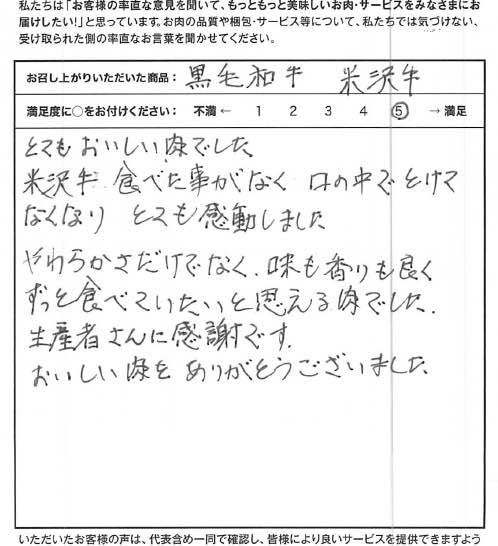 私たちは「お客様の率直な意見を聞いて、もっともっと美味しいお肉・サービスをみなさまにお
届けしたい!」と思っています。お肉の品質や梱包・サービス等について、私たちでは気づけない、
受け取られた側の率直なお言葉を聞かせてください。
お召し上がりいただいた商品： 黒毛和牛 米沢牛
満足度に○をお付けください： 不満 ← 1 2 3 4 5 → 満足
とてもおいしい肉でした。
米沢牛 食べた事がなく 口の中でとけて
なくなり とても感動しました
やわらかさだけでなく、味も香りも良く
ずっと食べていたいと思える肉でした。
生産者さんに感謝です。
おいしい肉を ありがとうございました。
いただいたお客様の声は、代表含め一同で確認し、皆様により良いサービスを提供できますよう